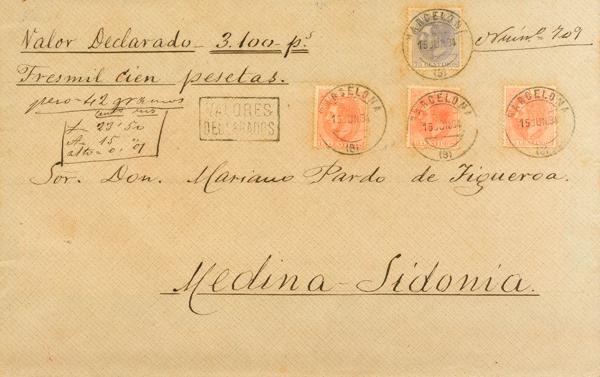 BARCELONA
15 JUN 84
(S)
Valor Declarado 3.100 p.s
Núm.o 709
Tresmil cien pesetas.
peso 42 gramos
L= 23'50
A= 15
alto= 0'01
VALORES
DECLARADOS
BARCELONA
15 JUN 84
(S)
BARCELONA
15 JUN 84
(S)
BARCELONA
15 JUN 84
(S)
Sor. Don. Mariano Pardo de Figueroa.
Medina-Sidonia.